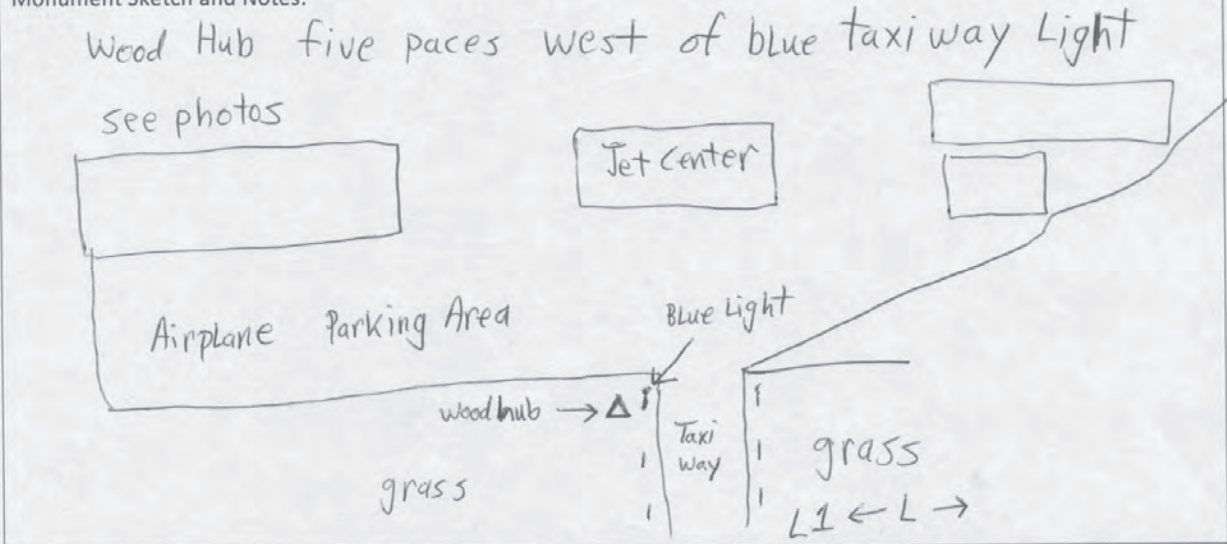 Monument Sketch and Notes:
Wood Hub five paces west of blue taxiway Light
see photos
Jet Center
Airplane Parking Area
Blue Light
wood hub → Δ
Taxi
way
grass
grass
L1 ← L →